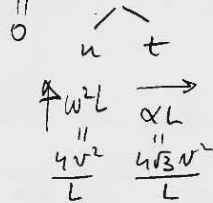 ||
0
n t
↑ ω²L → αL
|| ||
4v²/L 4√3 v²/L